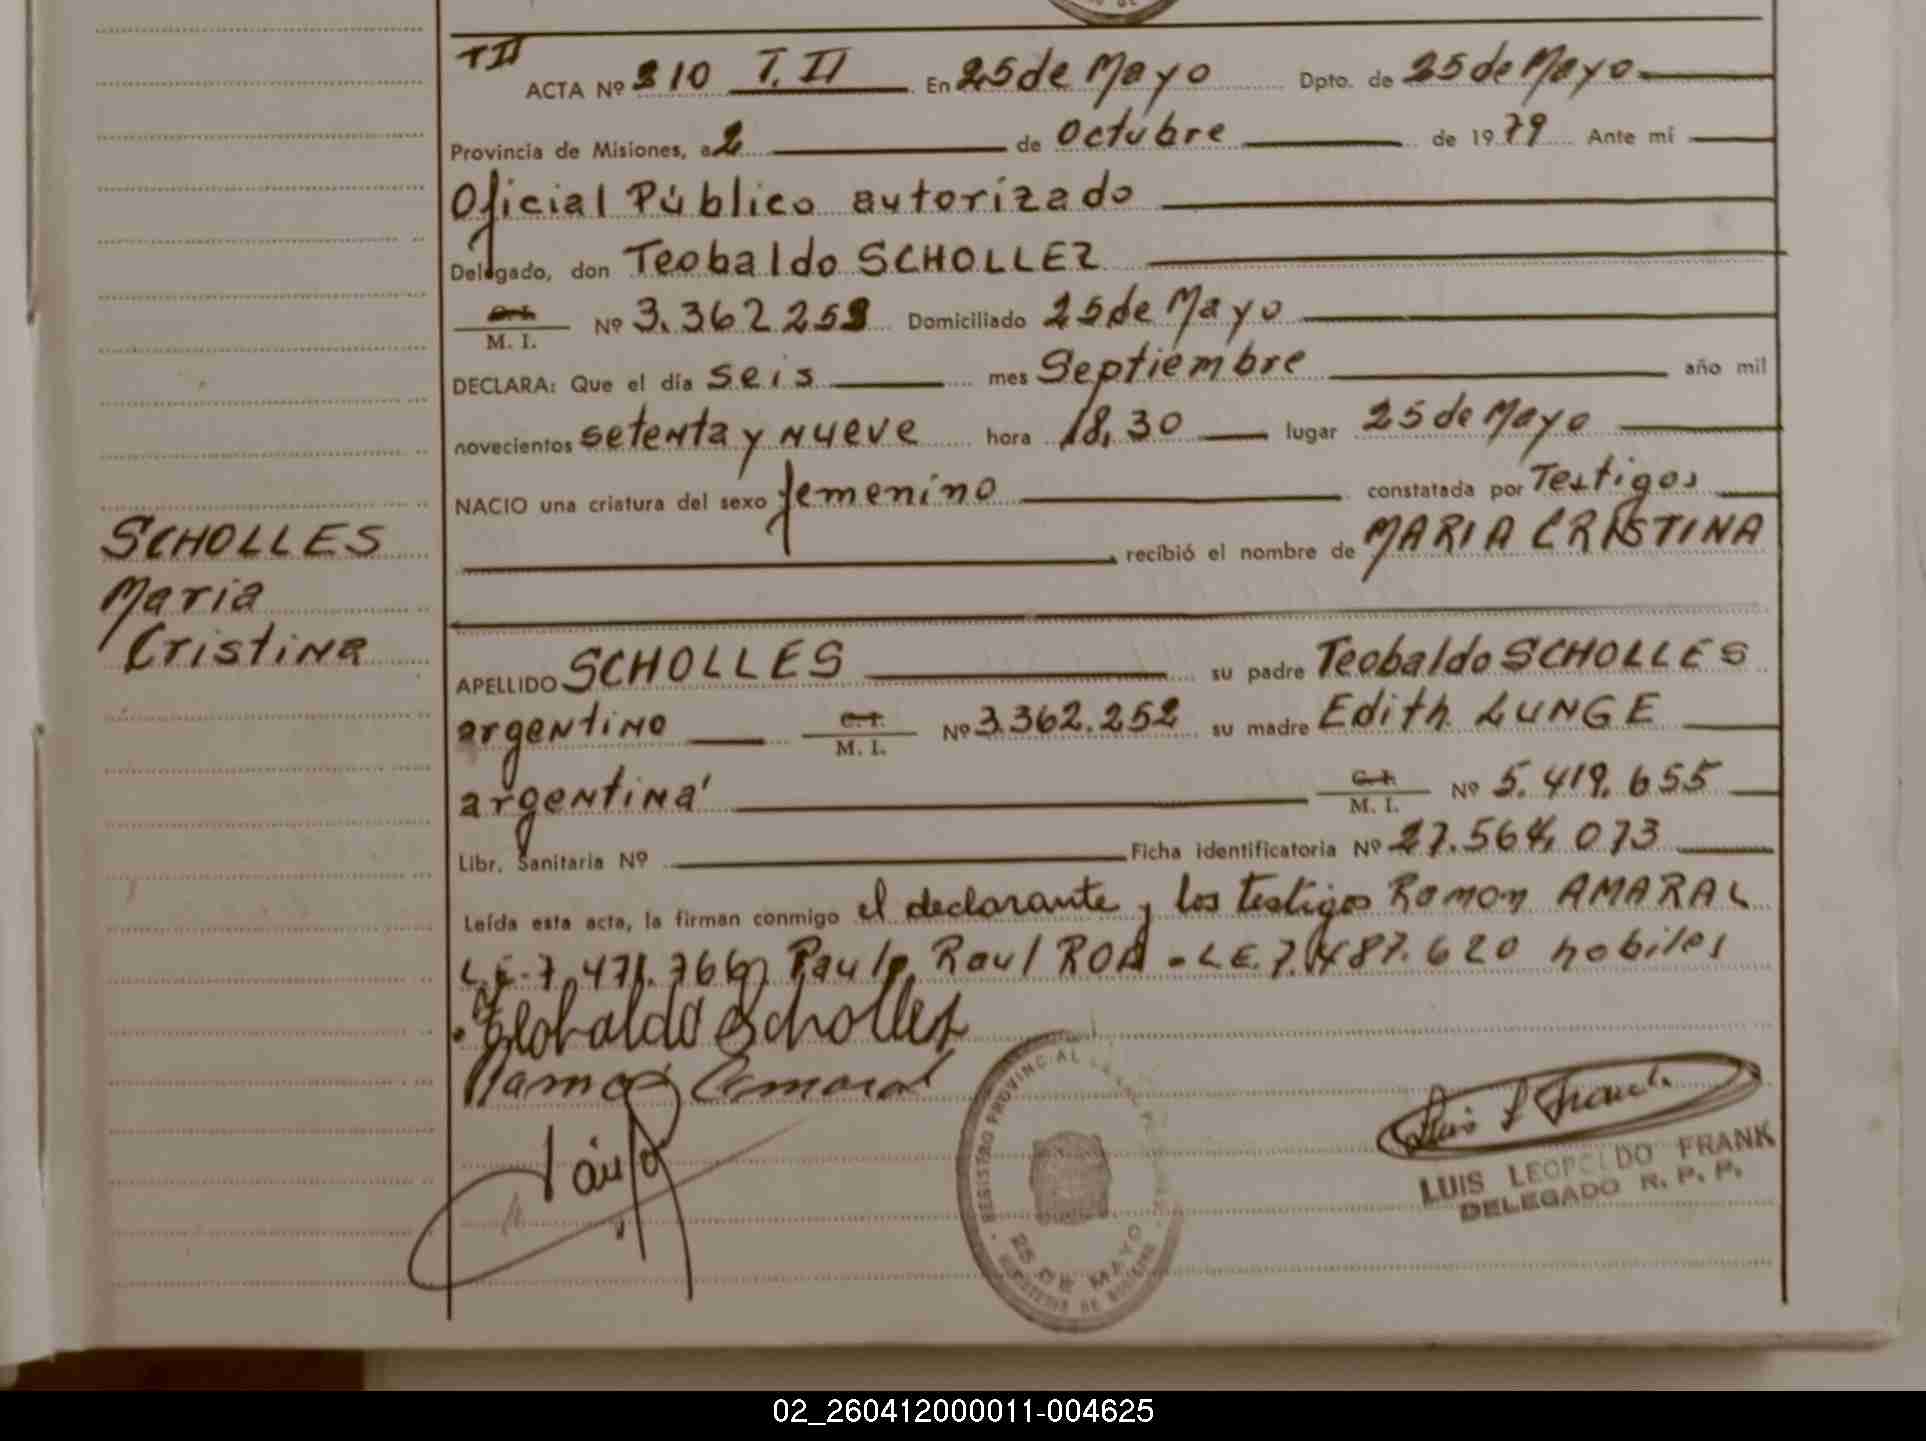 T II
ACTA Nº 210 T. II En 25 de Mayo Dpto. de 25 de Mayo
Provincia de Misiones, a 2 de Octubre de 1979 Ante mí
Oficial Público autorizado
Delegado, don Teobaldo SCHOLLEZ
C. I. M. I. Nº 3.362 252 Domiciliado 25 de Mayo
DECLARA: Que el día seis mes Septiembre año mil
novecientos setenta y nueve hora 18,30 lugar 25 de Mayo
NACIO una criatura del sexo femenino constatada por Testigos
recibió el nombre de MARIA CRISTINA
SCHOLLES
Maria
Cristina
APELLIDO SCHOLLES su padre Teobaldo SCHOLLES
argentino C. I. M. I. Nº 3.362.252 su madre Edith LUNGE
argentina C. I. M. I. Nº 5.419.655
Libr. Sanitaria Nº Ficha identificatoria Nº 27.564.073
Leída esta acta, la firman conmigo el declarante y los testigos Ramon AMARAL
L.E. 7.471.766 Raul ROA - L.E. 7.487.620 habiles
Teobaldo Scholles
Ramon Amaral
REGISTRO PROVINCIAL DE LAS P
25 DE MAYO
LUIS LEOPOLDO FRANK
DELEGADO R. P. P.
02_260412000011-004625